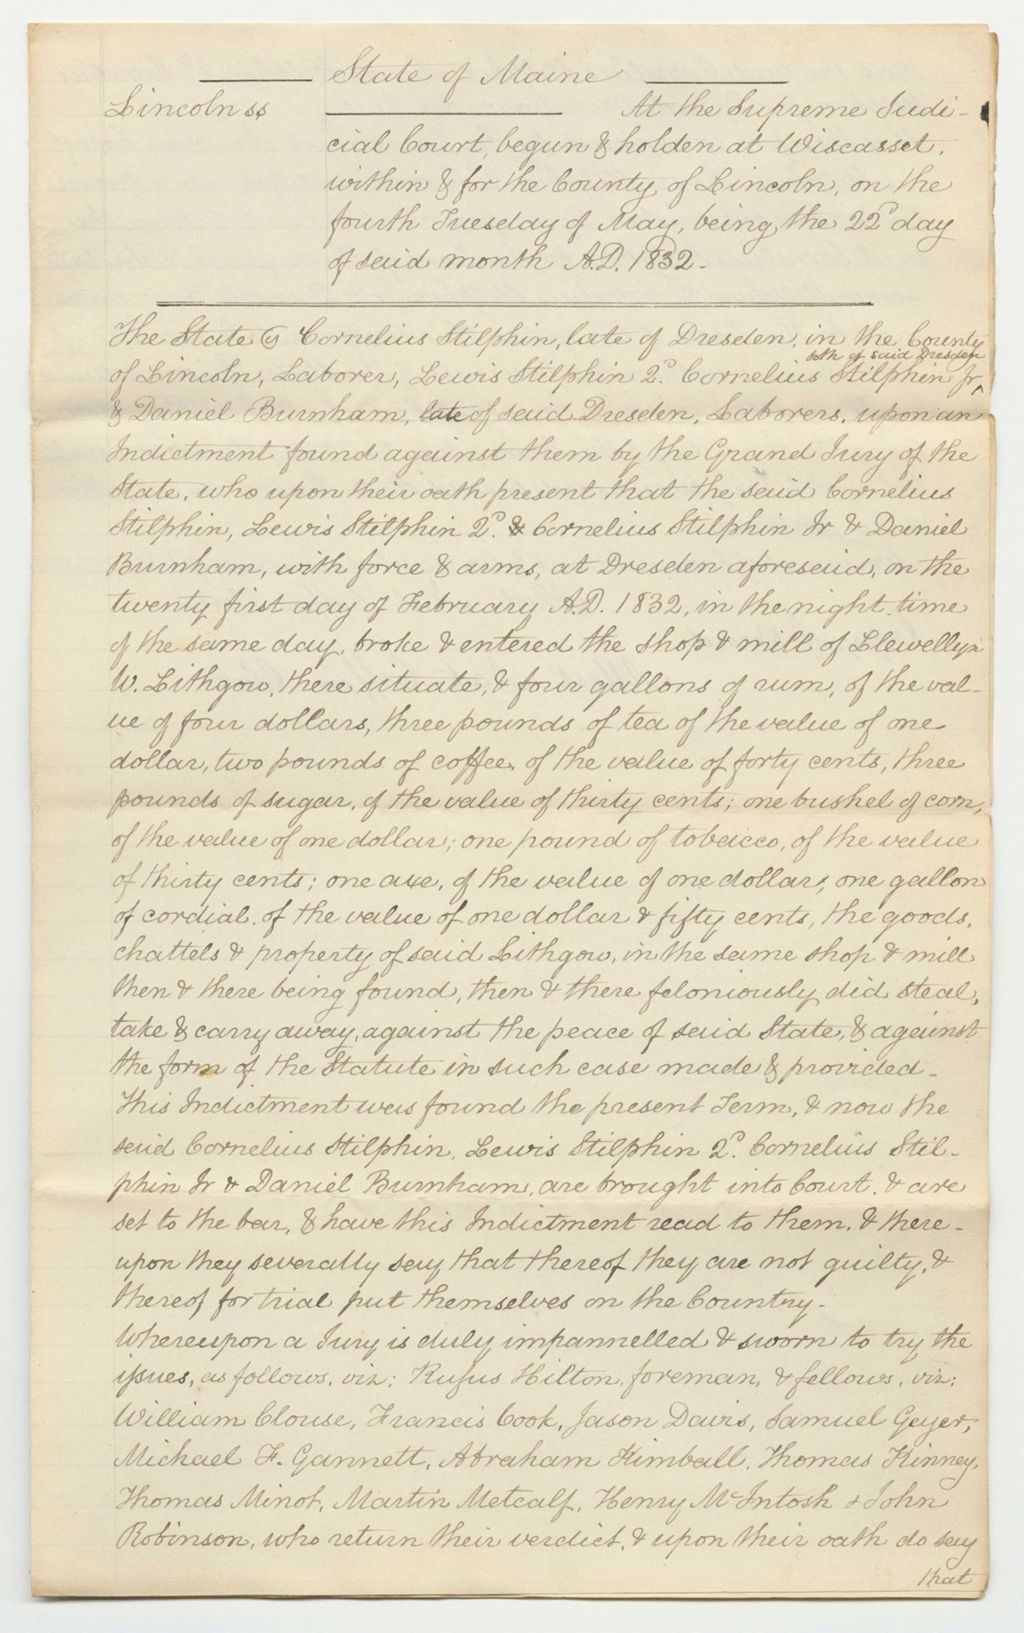 State of Maine
Lincoln ss At the Supreme Judi-
cial Court, begun & holden at Wiscasset,
within & for the County of Lincoln, on the
fourth Tuesday of May, being the 22d day
of said month A.D. 1832.
The State vs Cornelius Stilphin, late of Dresden, in the County
both of said Dresden
of Lincoln, Laborer, Lewis Stilphin 2d. Cornelius Stilphin Jr ^
& Daniel Burnham, late of said Dresden, Laborers, upon an
Indictment found against them by the Grand Jury of the
State, who upon their oath present that the said Cornelius
Stilphin, Lewis Stilphin 2d. & Cornelius Stilphin Jr & Daniel
Burnham, with force & arms, at Dresden aforesaid, on the
twenty first day of February A.D. 1832, in the night time
of the same day, broke & entered the shop & mill of Llewellyn
W. Lithgow, there situate, & four gallons of rum, of the val-
ue of four dollars, three pounds of tea of the value of one
dollar, two pounds of coffee, of the value of forty cents, three
pounds of sugar, of the value of thirty cents; one bushel of corn,
of the value of one dollar; one pound of tobacco, of the value
of thirty cents; one axe, of the value of one dollar; one gallon
of cordial, of the value of one dollar & fifty cents, the goods,
chattels & property of said Lithgow, in the same shop & mill
then & there being found, then & there feloniously did steal,
take & carry away, against the peace of said State, & against
the form of the Statute in such case made & provided.
This Indictment was found the present Term, & now the
said Cornelius Stilphin, Lewis Stilphin 2d. Cornelius Stil-
phin Jr & Daniel Burnham, are brought into Court, & are
set to the bar, & have this Indictment read to them, & there-
upon they severally say that thereof they are not guilty, &
thereof for trial put themselves on the Country.
Whereupon a Jury is duly impannelled & sworn to try the
issues, as follows, viz: Rufus Hilton, foreman, & fellows, viz:
William Clouse, Francis Cook, Jason Davis, Samuel Geyer,
Michael F. Gannett, Abraham Kimball, Thomas Kinney,
Thomas Minot, Martin Metcalf, Henry McIntosh & John
Robinson, who return their verdict, & upon their oath do say
that